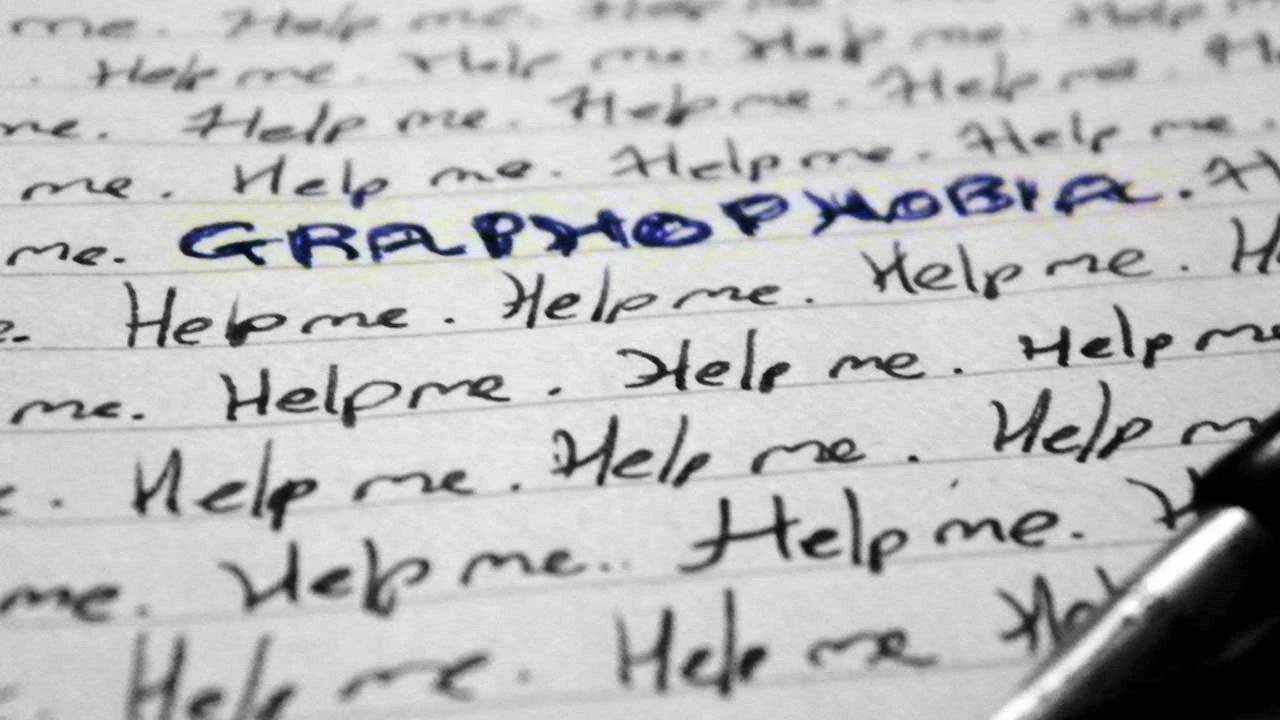 me. Help me. Help me. Help
. Help me. Help me. Help me. Help
me. Help me. Help me. Help me.
me. Help me. Help me. Help me.
me. GRAPHOPHOBIA. H
e. Help me. Help me. Help me. H
me. Help me. Help me. Help me
e. Help me. Help me. Help m
me. Help me.. Help me. H
. Help me. Help me Hel